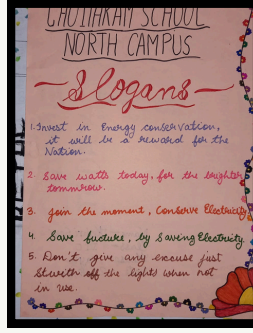 CHOITHRAM SCHOOL
NORTH CAMPUS
Slogans
1. Invest in Energy conservation,
it will be a reward for the
Nation.
2. Save watts today, for the brighter
tommrow.
3. join the moment, Conserve Electricity
4. Save fucture, by Saving Electricity.
5. Don't give any excuse just
Stwith off the lights when not
in use.